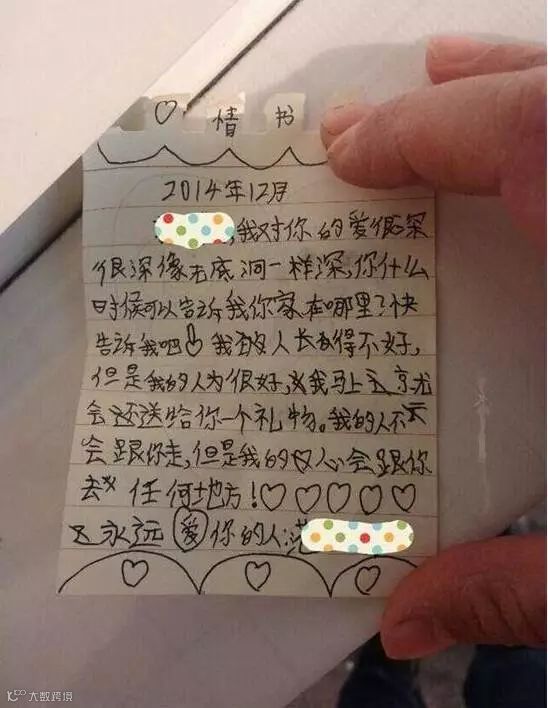 ♡ 情 书
2014年12月
,我对你的爱很深
很深像无底洞一样深,你什么
时候可以告诉我你家在哪里?快
告诉我吧 我的人长得不好,
但是我的人为很好,我马上就
会还送给你一个礼物。我的人不
会跟你走,但是我的心会跟你
去 任何地方!♡♡♡♡♡
永远爱你的人:
♡ ♡ ♡
大数跨境